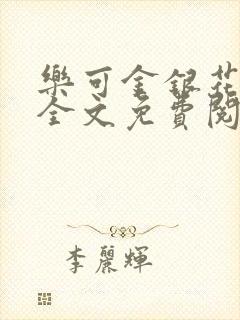 樂可金銀花
全文免費閱
李麗輝